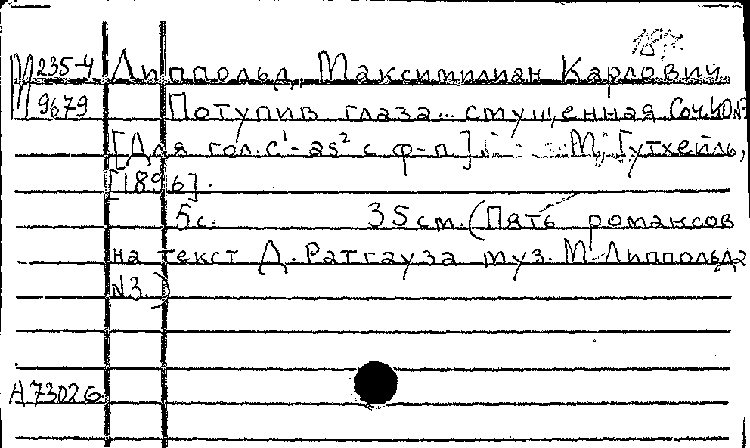 189
М 235-4 Липпольд, Максимилиан Карлович
9679 Потупив глаза.. смущенная. Соч. 40 №3
[Для гол. c¹-as² с ф-п]. М., Гутхейль,
[1896].
5с. 35см. (Пять романсов
на текст Д. Ратгауза муз. М. Липпольда
№3.)
А73026